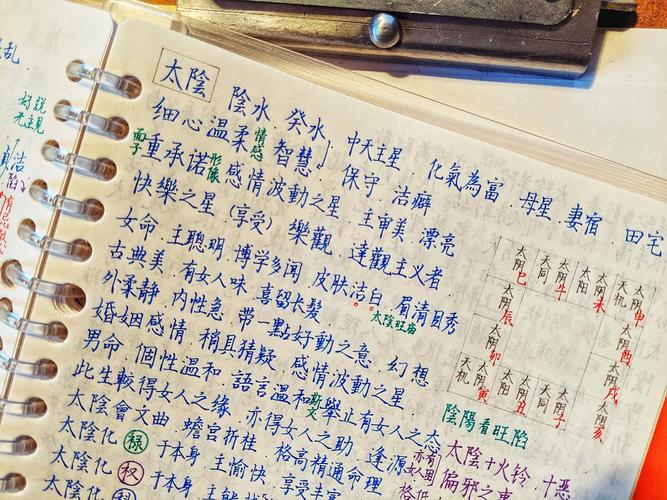 乱
好説
无主見
太陰
陰水 癸水 中天主星 化氣為富 母星 妻宿 田宅
細心溫柔 情感 智慧 保守 洁癖
面子 重承诺 形像 感情波動之星 主审美 漂亮
快樂之星 (享受) 樂觀 達觀主义者
女命 主聪明 博学多闻 皮肤洁白 眉清目秀
太陰旺廟
古典美 有女人味 喜留长髮
外柔静 内性急 带一點好動之意 幻想
婚姻感情 稍具猜疑 感情波动之星
男命 個性溫和 語言溫和 斯文 舉止有女人之态
此生較得女人之缘 亦得女人之助 逢源
太陰會文曲 蟾宫折桂 格高精通命理
太陰化禄 于本身 主愉快 享受丰富
太陰化权 于本身
太陰化科
太阴巳
太阴 天同午
太阳 太阴未
太阴 天机申
太阴辰
太阴酉
太阴卯
太阴戌
天机 太阴寅
太阳 太阴丑
天同 太阴子
太阴亥
陰陽看旺陷
太陰十火铃 十恶
偏邪之